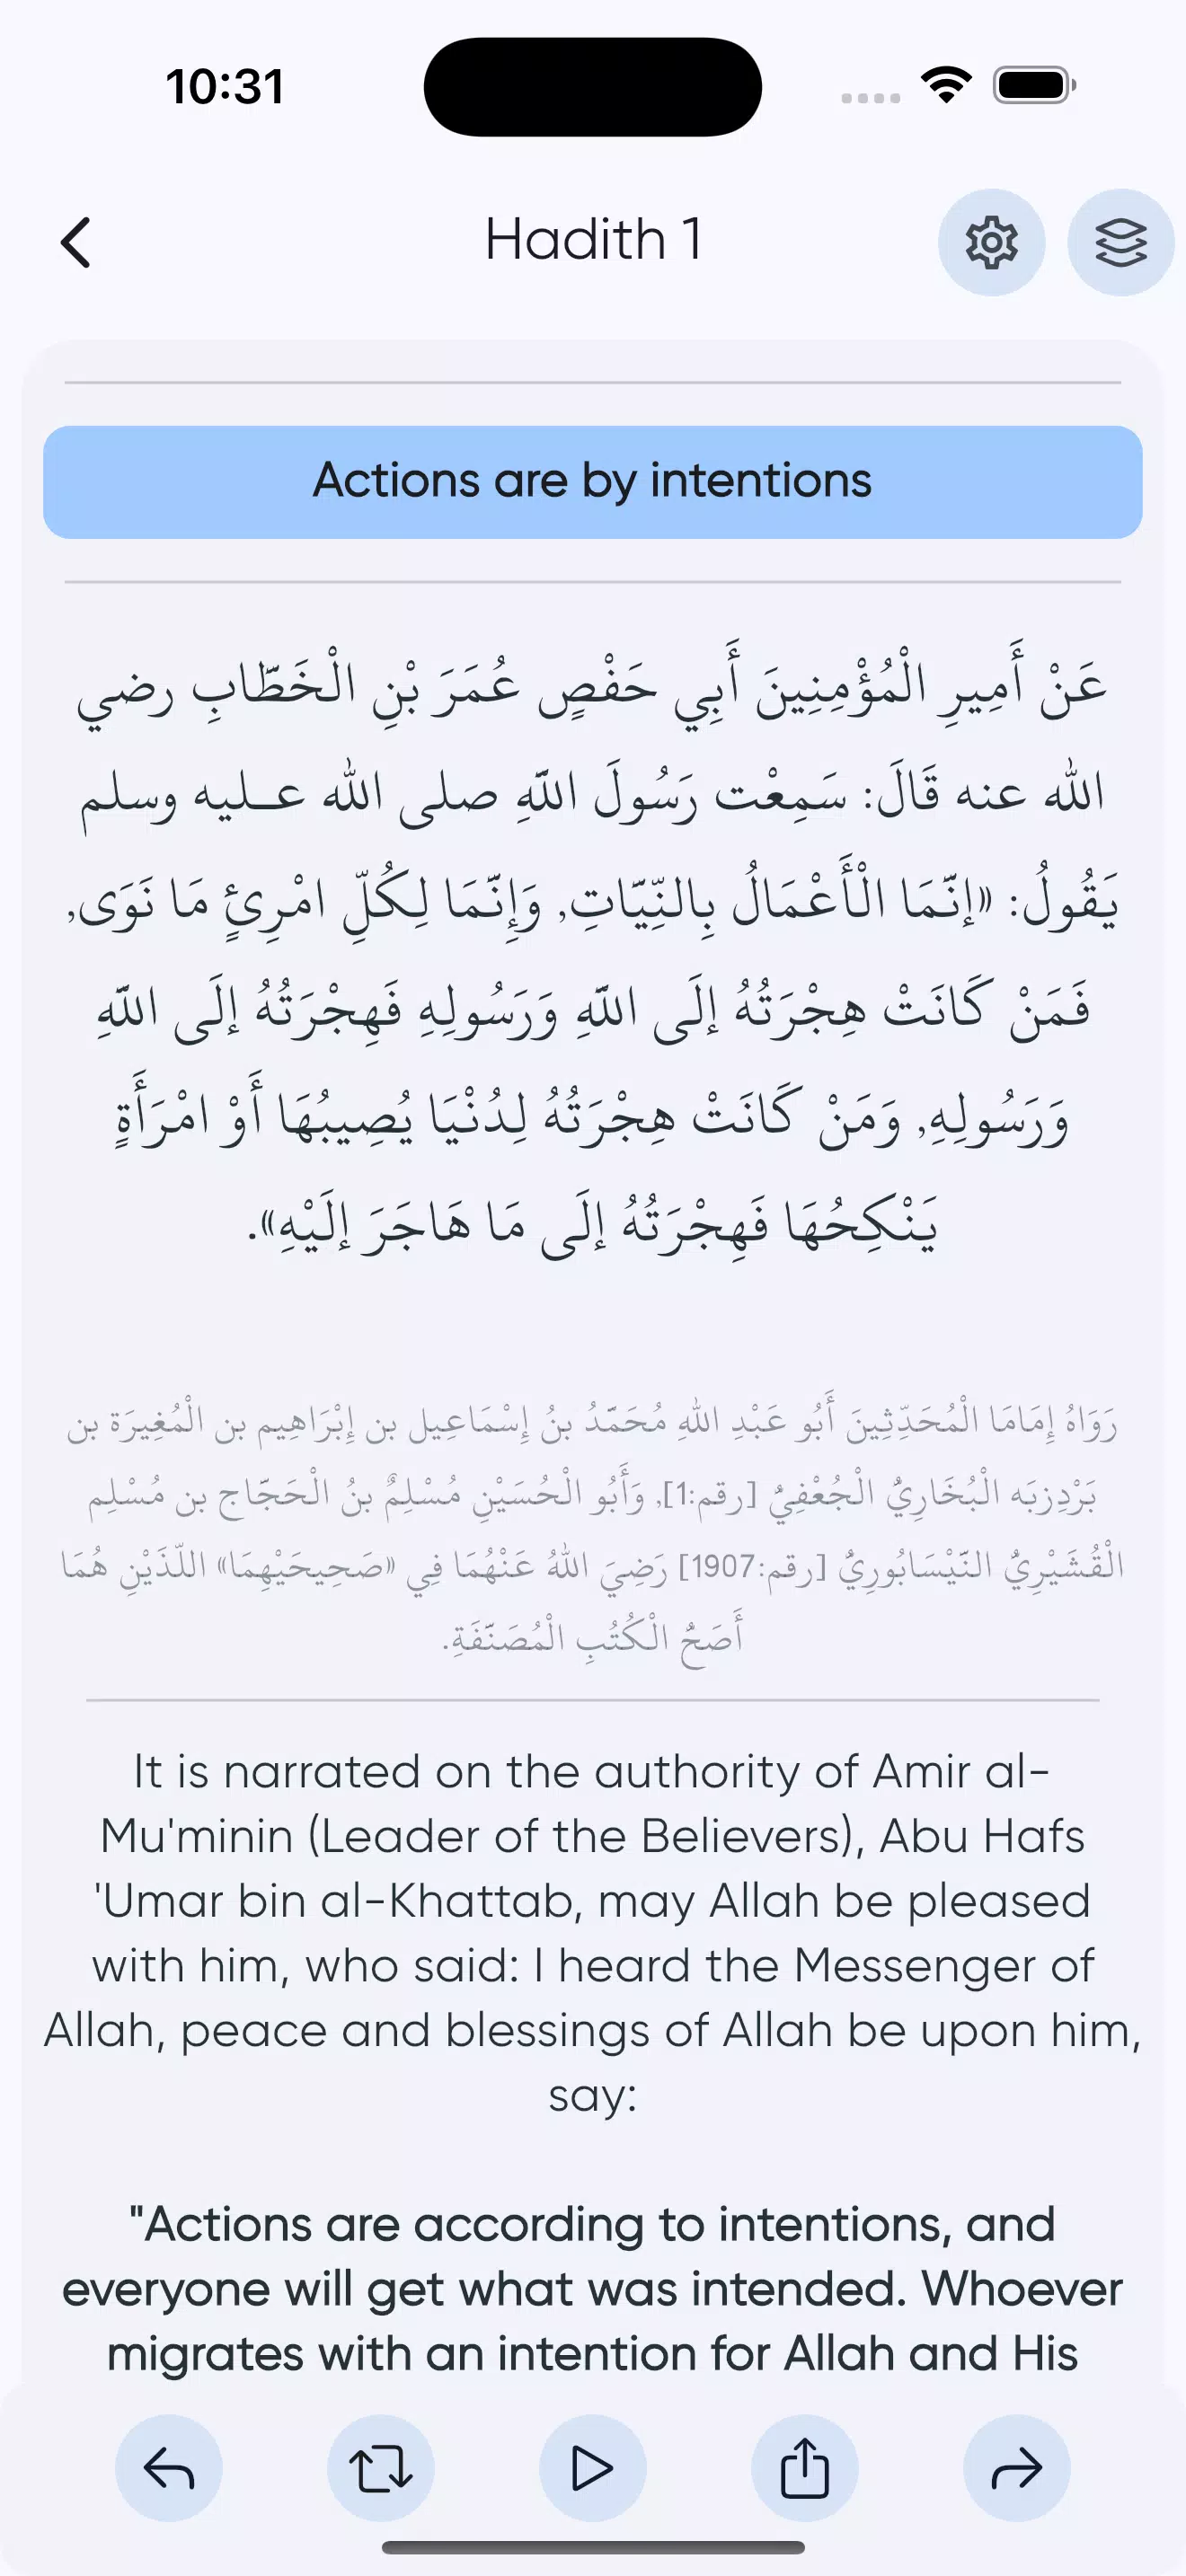 10:31
Hadith 1
Actions are by intentions
عَنْ أَمِيرِ الْمُؤْمِنِينَ أَبِي حَفْصٍ عُمَرَ بْنِ الْخَطَّابِ رضي
الله عنه قَالَ: سَمِعْت رَسُولَ اللَّهِ صلى الله عـليه وسلم
يَقُولُ: «إنَّمَا الْأَعْمَالُ بِالنِّيَّاتِ, وَإِنَّمَا لِكُلِّ امْرِئٍ مَا نَوَى,
فَمَنْ كَانَتْ هِجْرَتُهُ إلَى اللَّهِ وَرَسُولِهِ فَهِجْرَتُهُ إلَى اللَّهِ
وَرَسُولِهِ, وَمَنْ كَانَتْ هِجْرَتُهُ لِدُنْيَا يُصِيبُهَا أَوْ امْرَأَةٍ
يَنْكِحُهَا فَهِجْرَتُهُ إلَى مَا هَاجَرَ إلَيْهِ».
رَوَاهُ إِمَامَا الْمُحَدِّثِينَ أَبُو عَبْدِ اللهِ مُحَمَّدُ بنُ إِسْمَاعِيل بن إِبْرَاهِيم بن الْمُغِيرَة بن
بَرْدِزبَه الْبُخَارِيُّ الْجُعْفِيُّ [رقم:1], وَأَبُو الْحُسَيْنِ مُسْلِمٌ بنُ الْحَجَّاج بن مُسْلِم
الْقُشَيْرِيُّ النَّيْسَابُورِيُّ [رقم:1907] رَضِيَ اللهُ عَنْهُمَا فِي «صَحِيحَيْهِمَا» اللَّذَيْنِ هُمَا
أَصَحُّ الْكُتُبِ الْمُصَنَّفَةِ.
It is narrated on the authority of Amir al-
Mu'minin (Leader of the Believers), Abu Hafs
'Umar bin al-Khattab, may Allah be pleased
with him, who said: I heard the Messenger of
Allah, peace and blessings of Allah be upon him,
say:
"Actions are according to intentions, and
everyone will get what was intended. Whoever
migrates with an intention for Allah and His